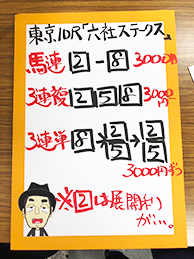 東京10R「六社ステークス」
馬連 2-8 3000円
3連複 2 5 8 3000円
3連単 8→2/5→2/5
3000円ずつ
※2は展開利
が…。